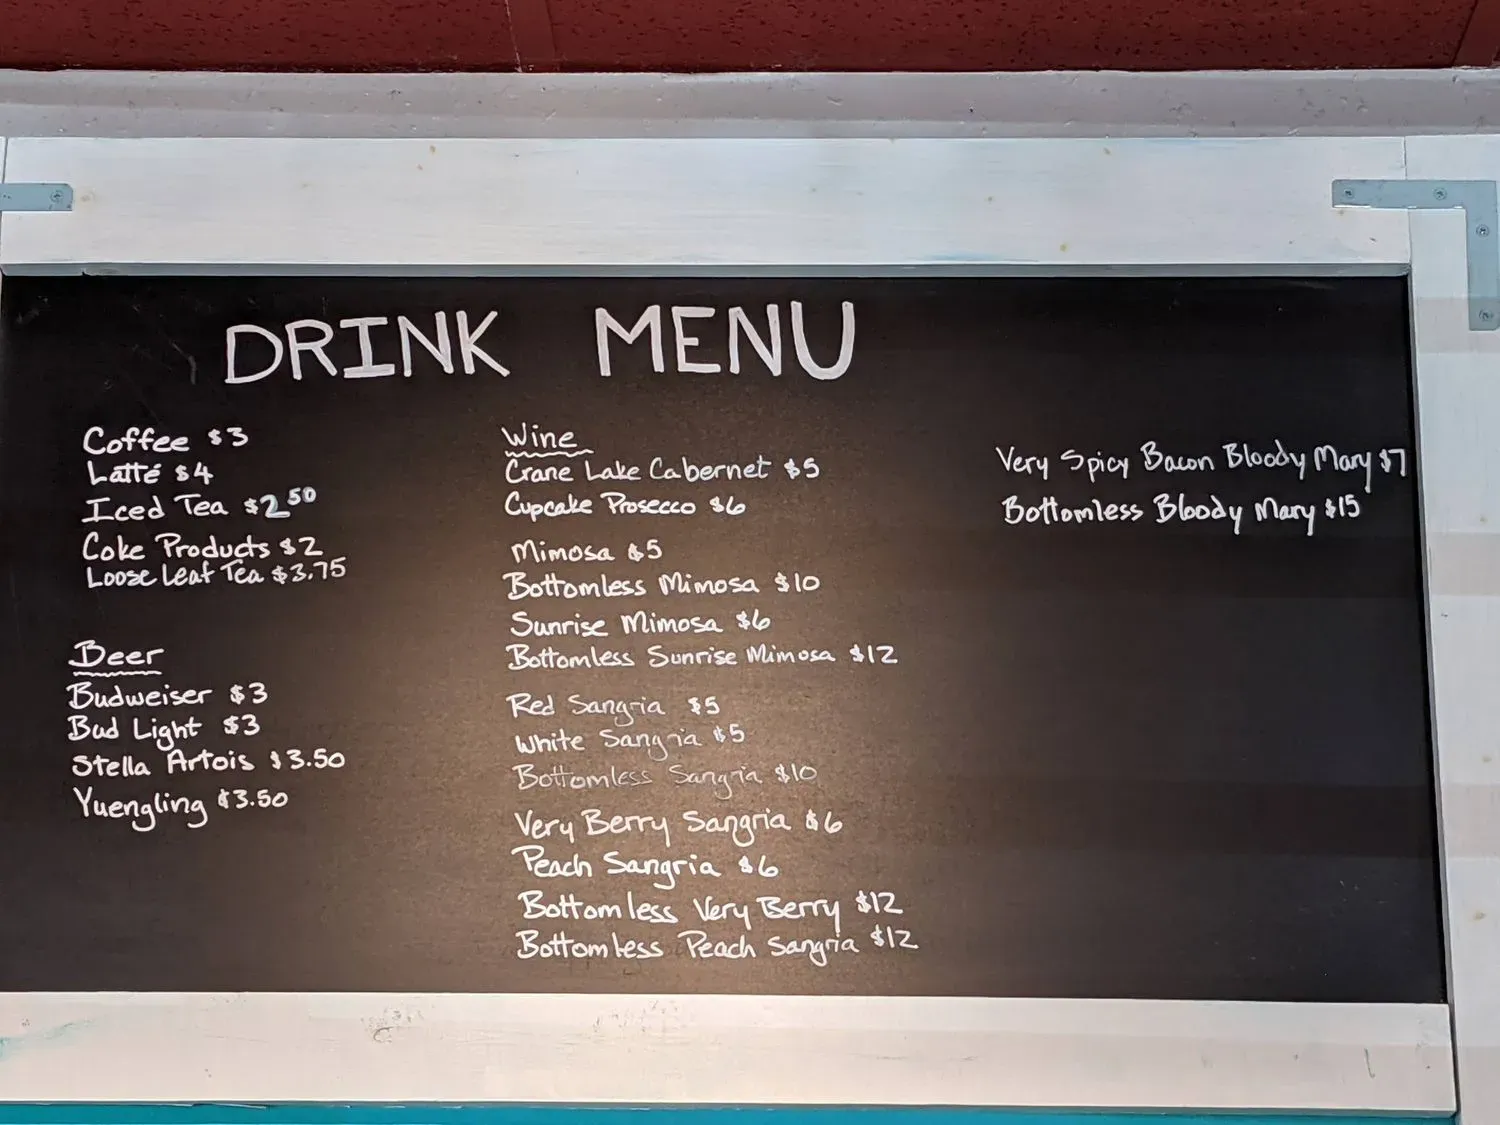 DRINK MENU
Coffee $3
Latté $4
Iced Tea $2.50
Coke Products $2
Loose Leaf Tea $3.75
Beer
Budweiser $3
Bud Light $3
Stella Artois $3.50
Yuengling $3.50
Wine
Crane Lake Cabernet $5
Cupcake Prosecco $6
Mimosa $5
Bottomless Mimosa $10
Sunrise Mimosa $6
Bottomless Sunrise Mimosa $12
Red Sangria $5
White Sangria $5
Bottomless Sangria $10
Very Berry Sangria $6
Peach Sangria $6
Bottomless Very Berry $12
Bottomless Peach Sangria $12
Very Spicy Bacon Bloody Mary $7
Bottomless Bloody Mary $15